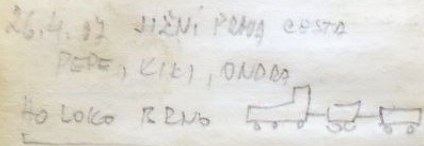 26.4.07 JIŽNÍ PRVA CESTA
PEPE, KIKI, ONDRA
HO LOKO BRNO